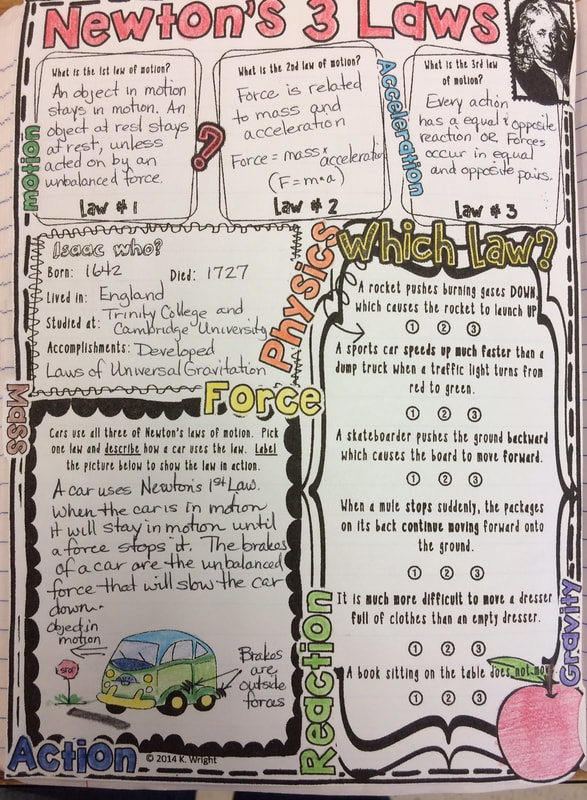 Newton's 3 Laws
What is the 1st law of motion?
An object in motion
stays in motion. An
object at rest stays
at rest, unless
acted on by an
unbalanced force.
Law #1
motion
?
What is the 2nd law of motion?
Force is related
to mass and
acceleration
Force = mass × acceleration
(F=m•a)
Law #2
Acceleration
What is the 3rd law
of motion?
Every action
has a equal & opposite
reaction OR Forces
occur in equal
and opposite pairs.
Law #3
Isaac who?
Born: 1642 Died: 1727
Lived in: England
Studied at: Trinity College and
Cambridge University
Accomplishments: Developed
Laws of Universal Gravitation
Physics
Mass
Force
Cars use all three of Newton's laws of motion. Pick
one law and describe how a car uses the law. Label
the picture below to show the law in action.
A car uses Newton's 1st Law.
When the car is in motion
it will stay in motion until
a force stops it. The brakes
of a car are the unbalanced
force that will slow the car
down.
object in
motion
STOP
Brakes
are
outside
forces
Action
© 2014 K. Wright
Which Law?
A rocket pushes burning gases DOWN,
which causes the rocket to launch UP.
1 2 3
A sports car speeds up much faster than a
dump truck when a traffic light turns from
red to green.
1 2 3
A skateboarder pushes the ground backward
which causes the board to move forward.
1 2 3
When a mule stops suddenly, the packages
on its back continue moving forward onto
the ground.
1 2 3
It is much more difficult to move a dresser
full of clothes than an empty dresser.
1 2 3
A book sitting on the table does not move.
1 2 3
Reaction
Gravity